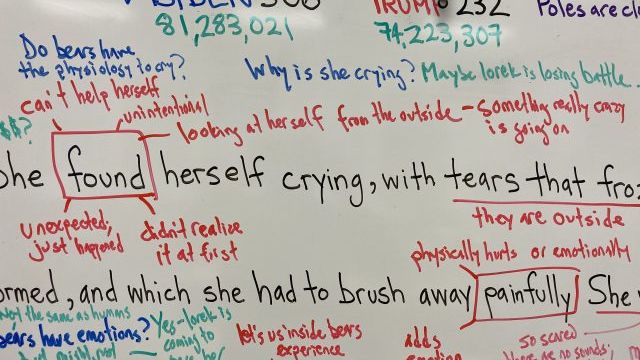 BIDEN 306
81,283,021
TRUMP 232
74,223,307
Poles are
Do bears have
the physiology to cry?
Why is she crying?
Maybe Iorek is losing battle
can't help herself
unintentional
looking at herself from the outside - something really crazy
is going on
$$?
She found herself crying, with tears that
unexpected,
just happened
didn't realize
it at first
they are outside
physically hurts or emotionally
and which she had to brush away painfully She
Not the same as humans
bears have emotions?
Yes - Iorek is
coming to
let's us inside bears
experience
adds
so scared